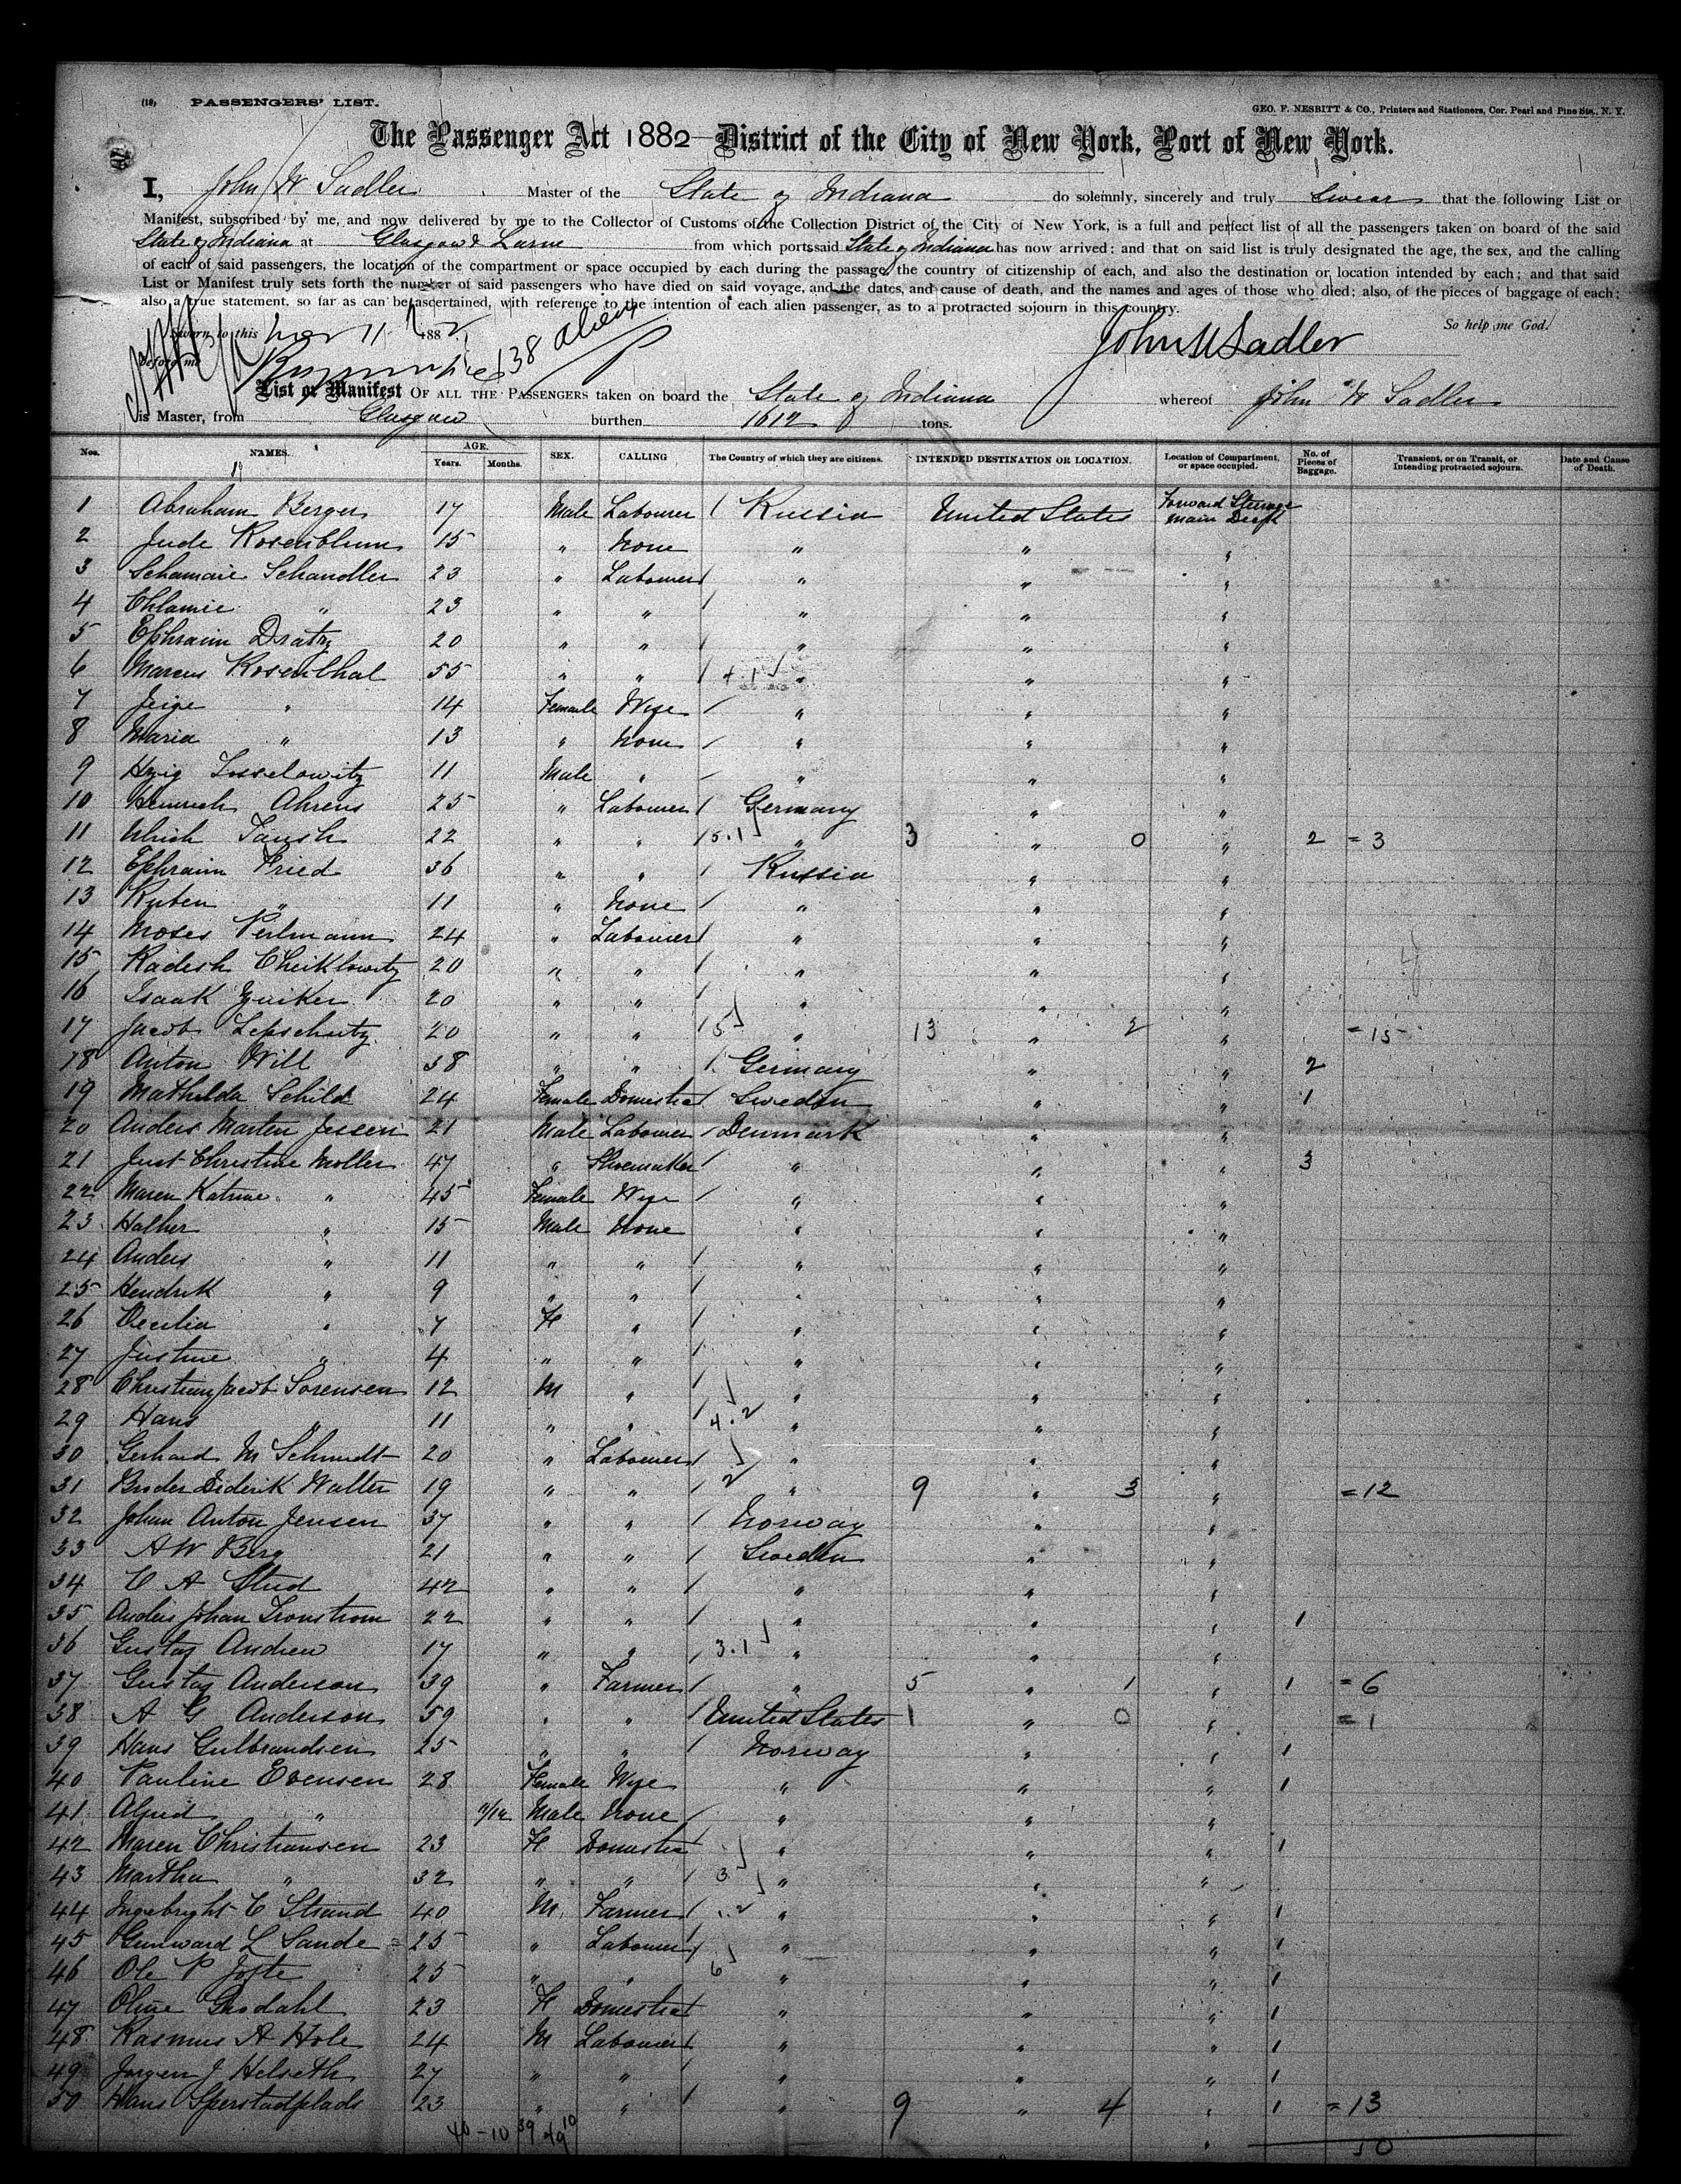 (18) PASSENGERS' LIST. GEO. F. NESBITT & CO., Printers and Stationers, Cor. Pearl and Pine Sts., N. Y.
The Passenger Act 1882—District of the City of New York, Port of New York.
I, John W Sadler Master of the State of Indiana do solemnly, sincerely and truly Swear that the following List or
Manifest, subscribed by me, and now delivered by me to the Collector of Customs of the Collection District of the City of New York, is a full and perfect list of all the passengers taken on board of the said
State of Indiana at Glasgow & Larne from which ports said State of Indiana has now arrived; and that on said list is truly designated the age, the sex, and the calling
of each of said passengers, the location of the compartment or space occupied by each during the passage, the country of citizenship of each, and also the destination or location intended by each; and that said
List or Manifest truly sets forth the number of said passengers who have died on said voyage, and the dates, and cause of death, and the names and ages of those who died; also, of the pieces of baggage of each;
also a true statement, so far as can be ascertained, with reference to the intention of each alien passenger, as to a protracted sojourn in this country.
So help me God.
Sworn to this 11 188
before me 138 aliens John W Sadler
List or Manifest OF ALL THE PASSENGERS taken on board the State of Indiana whereof John W Sadler
is Master, from Glasgow burthen 1612 tons.
Nos. NAMES. AGE. Years. Months. SEX. CALLING The Country of which they are citizens. INTENDED DESTINATION OR LOCATION. Location of Compartment, or space occupied. No. of Pieces of Baggage. Transient, or on Transit, or Intending protracted sojourn. Date and Cause of Death.
1 Abraham Berger 17 Male Labourer / Russia United States Forward Steerage main Deck
2 Jude Rosenblum 15 " None " " "
3 Schamaie Schandler 23 " Labourer / " " "
4 Chlamie " 23 " " / " " "
5 Ephraim Dratz 20 " " / " " "
6 Marcus Rosenthal 55 " " / 4.1 " " "
7 Jeige " 14 Female Wife / " " "
8 Maria " 13 " None / " " "
9 Hzig Josselowitz 11 Male " / " " "
10 Heinrich Ahrens 25 " Labourer / Germany " "
11 Ulrich 22 " " / 5.1 " 3 " 0 " 2 = 3
12 Ephraim Fried 36 " " / Russia " "
13 Ruben " 11 " None / " " "
14 Moses Perlmann 24 " Labourer / " " "
15 Kadesh Cheiklowitz 20 " " / " " "
16 Isaak 20 " " / " " "
17 Jacob Lepschutz 20 " " / 5 " 13 " 2 " = 15
18 Anton Will 38 " " / Germany " " 2
19 Mathilda Schild 24 Female Domestic / Sweden " " 1
20 Anders Marten Jessen 21 Male Labourer / Denmark " "
21 Just Christine Moller 47 " Shoemaker / " " " 3
22 Maren Katrine " 45 Female Wife / " " "
23 " 15 Male None " " "
24 Anders " 11 " " / " " "
25 Hendrik " 9 " " / " " "
26 Cecilia " 7 F " / " " "
27 Justine " 4 " " / " " "
28 Christian Jacob Sorensen 12 M " / " " "
29 Hans " 11 " " / 4.2 " " "
30 Gerhard M Schmidt 20 " Labourer / " " "
31 Diderik Walter 19 " " / 2 " 9 " 3 " = 12
32 Johan Anton Jensen 37 " " / Norway " "
33 A W Berg 21 " " / Sweden " "
34 C A Stud 42 " " / " " "
35 Anders Johan Tronstrom 22 " " / " " " 1
36 Gustaf Andrew 17 " " / 3.1 " " "
37 Gustaf Anderson 39 " Farmer / " 5 " 1 " 1 = 6
38 A G Anderson 59 " " / United States 1 " 0 " = 1
39 Hans Gulbrandsen 25 " " / Norway " " 1
40 Pauline Evensen 28 Female Wife " " " 1
41 Alfred " Male None / " " "
42 Maren Christiansen 23 F Domestic / " " " 1
43 Martha " 32 " " / 3 " " "
44 Ingebright C Strand 40 M Farmer / " " " 1
45 Gunward L Sande 25 " Labourer / " " " 1
46 Ole P Jofte 25 " " 6 " " " 1
47 Oline 23 F Domestic / " " " 1
48 Rasmus A Hole 24 M Labourer / " " " 1
49 Jorgen J Helseth 27 " " / " " " 1
50 Hans Sperstadplads 23 " " / " 9 " 4 " 1 = 13
40-10 39 49 10 " 50